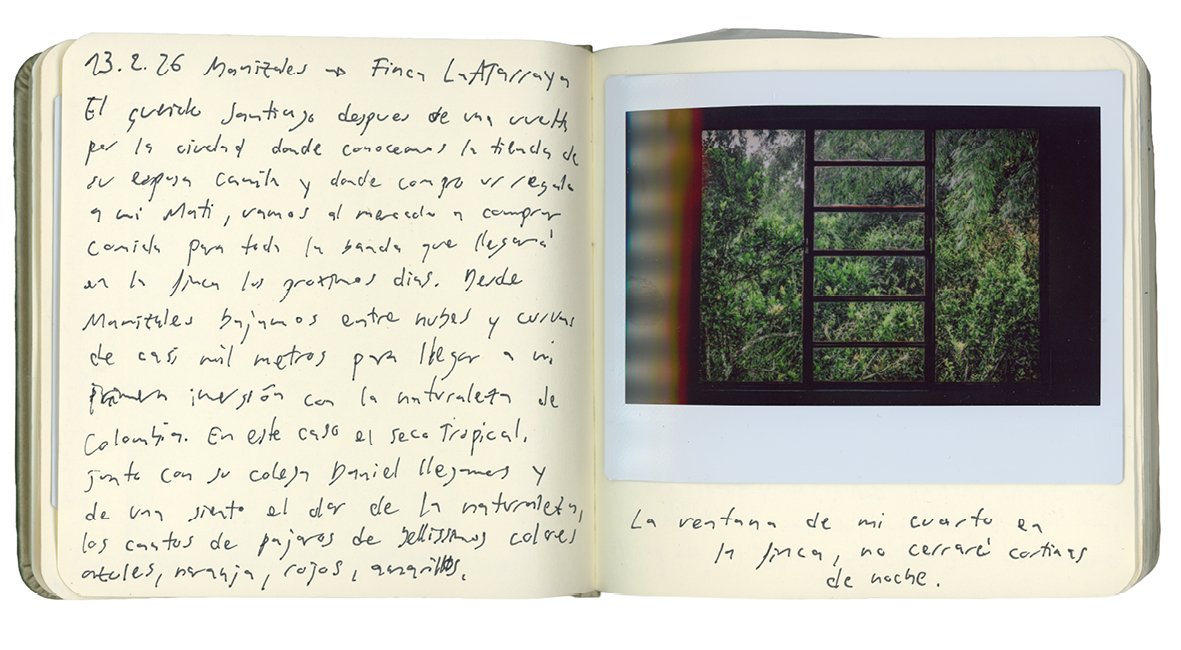 13.2.26 Manizales → Finca LaAtarraya
El querido Santiago despues de una vuelta
por la ciudad donde conocemos la tienda de
su esposa Camila y donde compro un regalo
a mi Mati, vamos al mercado a comprar
comida para toda la banda que llegará
en la finca los proximos dias. Desde
Manizales bajamos entre nubes y curvas
de casi mil metros para llegar a mi
primera inersión con la naturaleza de
Colombia. En este caso el seco Tropical,
junto con su colega Daniel llegamos y
de una siento el olor de la naturaleza,
los cantos de pajaros de bellissimos colores
azules, naranja, rojos, amarillos.
La ventana de mi cuarto en
la finca, no cerraré cortinas
de noche.